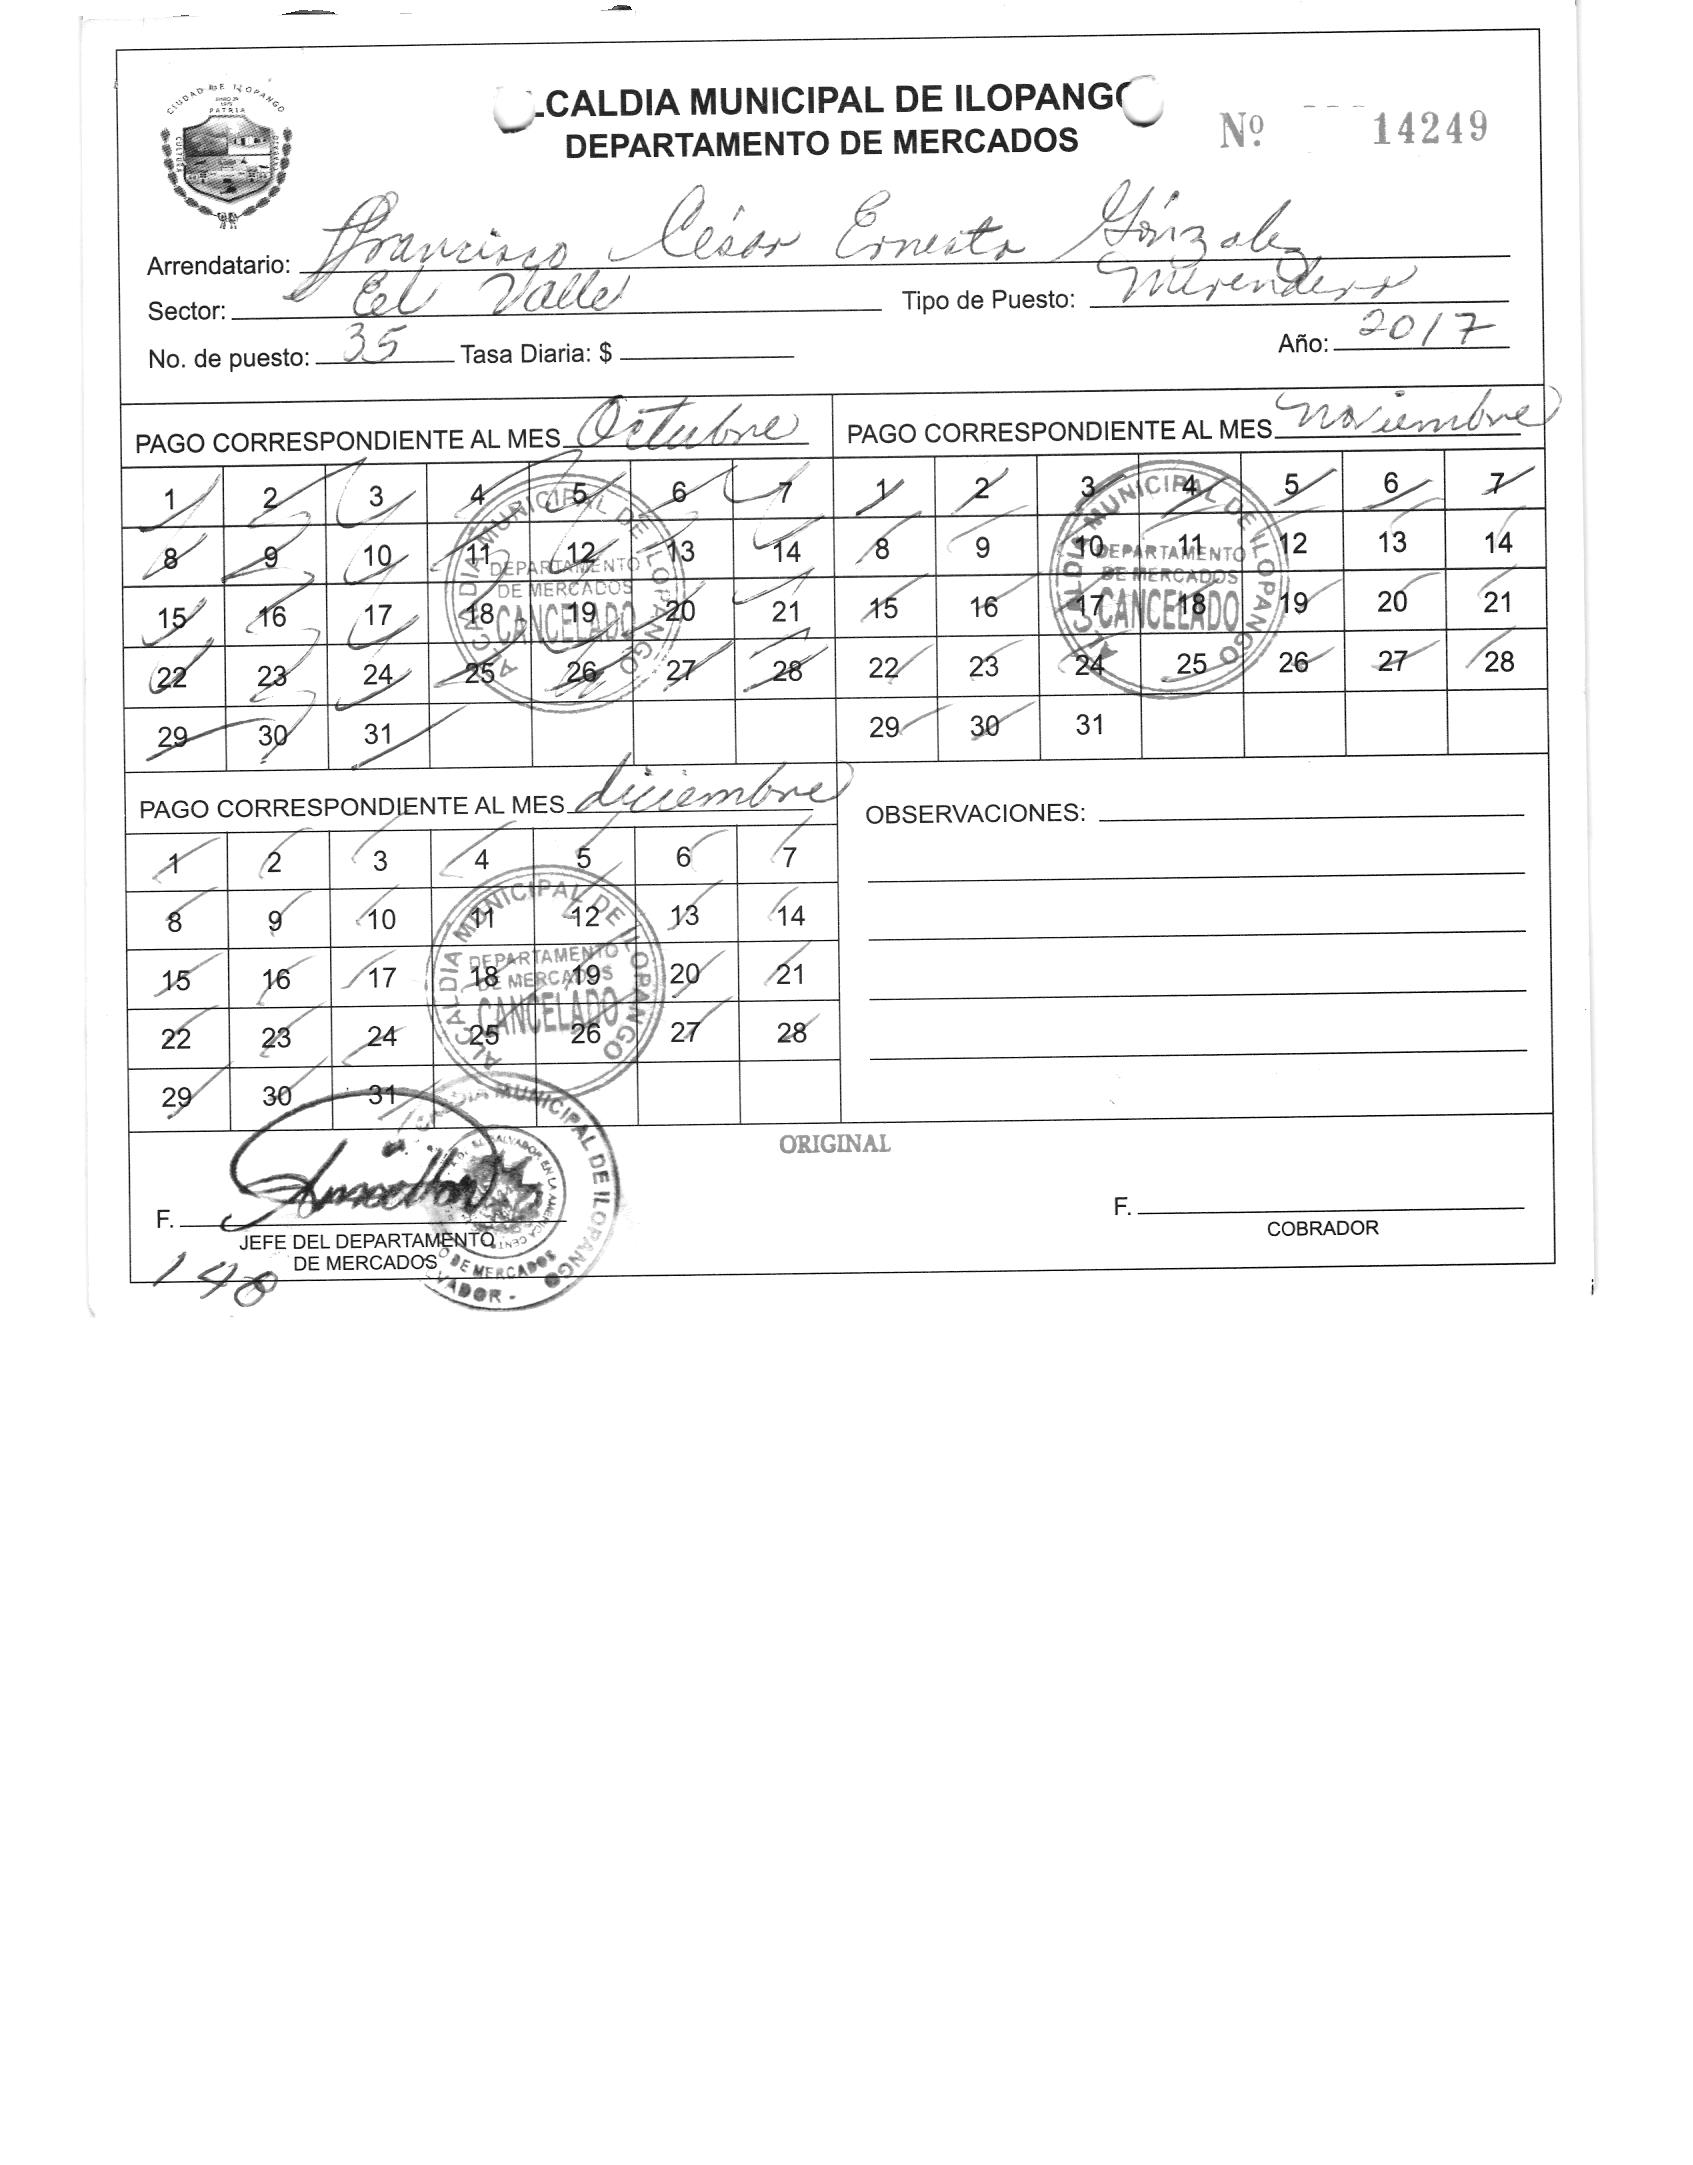 CIUDAD DE ILOPANGO
PATRIA
CULTURA
LCALDIA MUNICIPAL DE ILOPANGO
DEPARTAMENTO DE MERCADOS
Nº 14249
Arrendatario: Francisco César Ernesto Gónzalez
Sector: El Valle Tipo de Puesto: Merendero
No. de puesto: 35 Tasa Diaria: $ Año: 2017
PAGO CORRESPONDIENTE AL MES Octubre
1 2 3 4 5 6 7
8 9 10 11 12 13 14
15 16 17 18 19 20 21
22 23 24 25 26 27 28
29 30 31
ALCALDIA MUNICIPAL DE ILOPANGO
DEPARTAMENTO
DE MERCADOS
CANCELADO
PAGO CORRESPONDIENTE AL MES noviembre
1 2 3 4 5 6 7
8 9 10 11 12 13 14
15 16 17 18 19 20 21
22 23 24 25 26 27 28
29 30 31
ALCALDIA MUNICIPAL DE ILOPANGO
DEPARTAMENTO
DE MERCADOS
CANCELADO
PAGO CORRESPONDIENTE AL MES diciembre
1 2 3 4 5 6 7
8 9 10 11 12 13 14
15 16 17 18 19 20 21
22 23 24 25 26 27 28
29 30 31
ALCALDIA MUNICIPAL DE ILOPANGO
DEPARTAMENTO
DE MERCADOS
CANCELADO
OBSERVACIONES:
ORIGINAL
F.
JEFE DEL DEPARTAMENTO
DE MERCADOS
MUNICIPAL DE ILOPANGO
DE MERCADOS
VADOR -
148
F.
COBRADOR